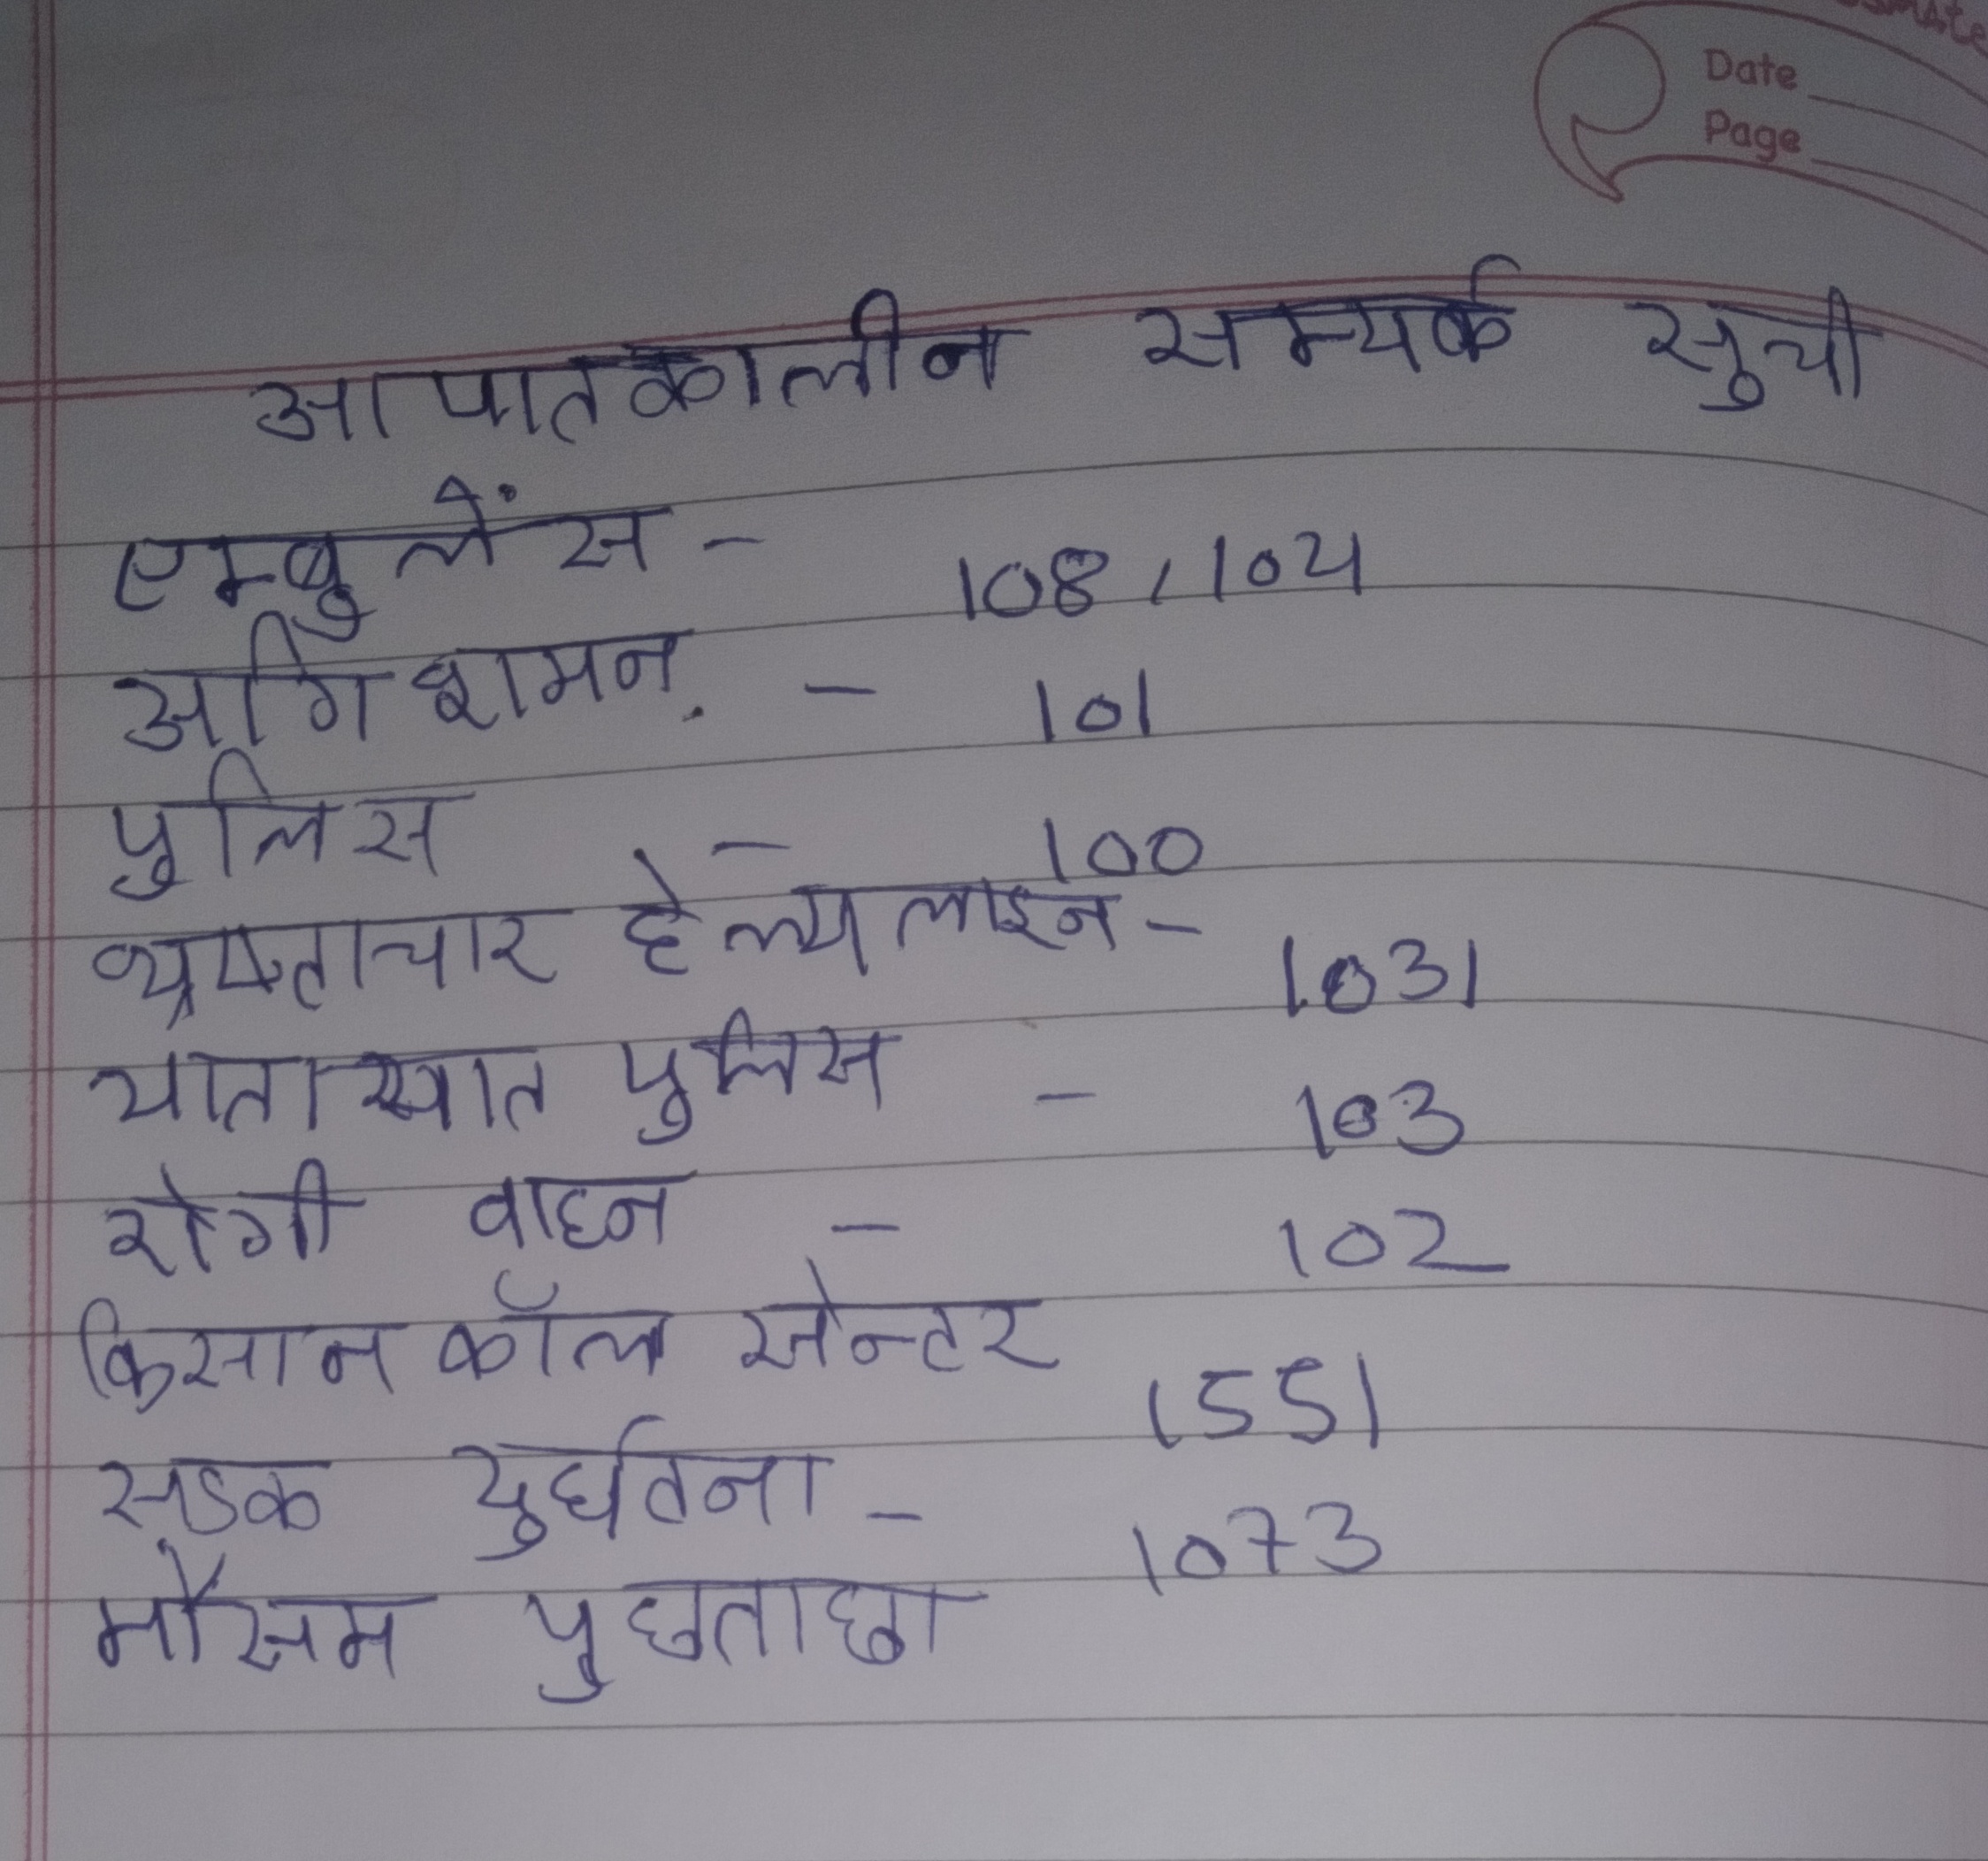 Date
Page
आपातकालीन सम्पर्क सुची
एम्बुलेंस - 108, 104
अगिशमन - 101
पुलिस - 100
भ्रष्टाचार हेल्पलाइन - 1031
यातायात पुलिस - 103
रोगी वाहन - 102
किसान कॉल सेन्टर 1551
सडक दुर्घतना - 1073
मौसम पुछताछा